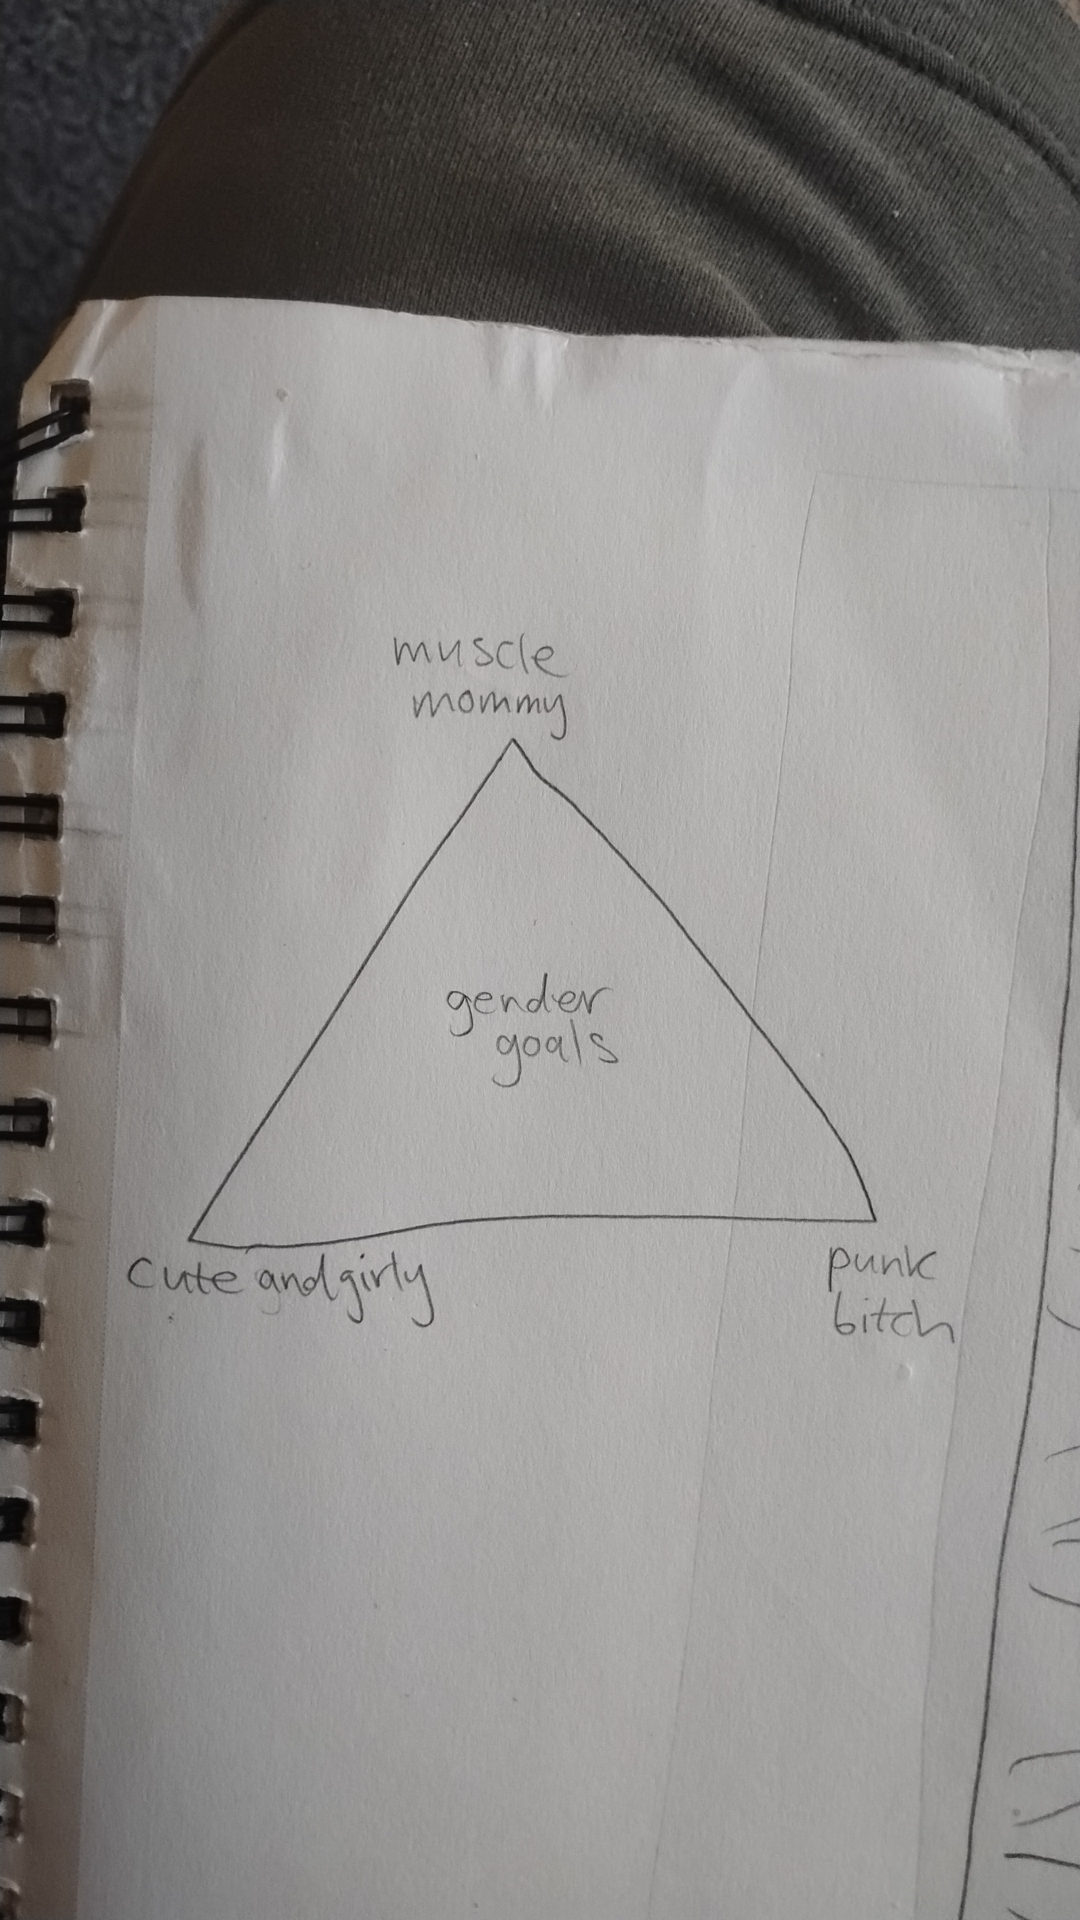 muscle
mommy
gender
goals
cute and girly
punk
bitch